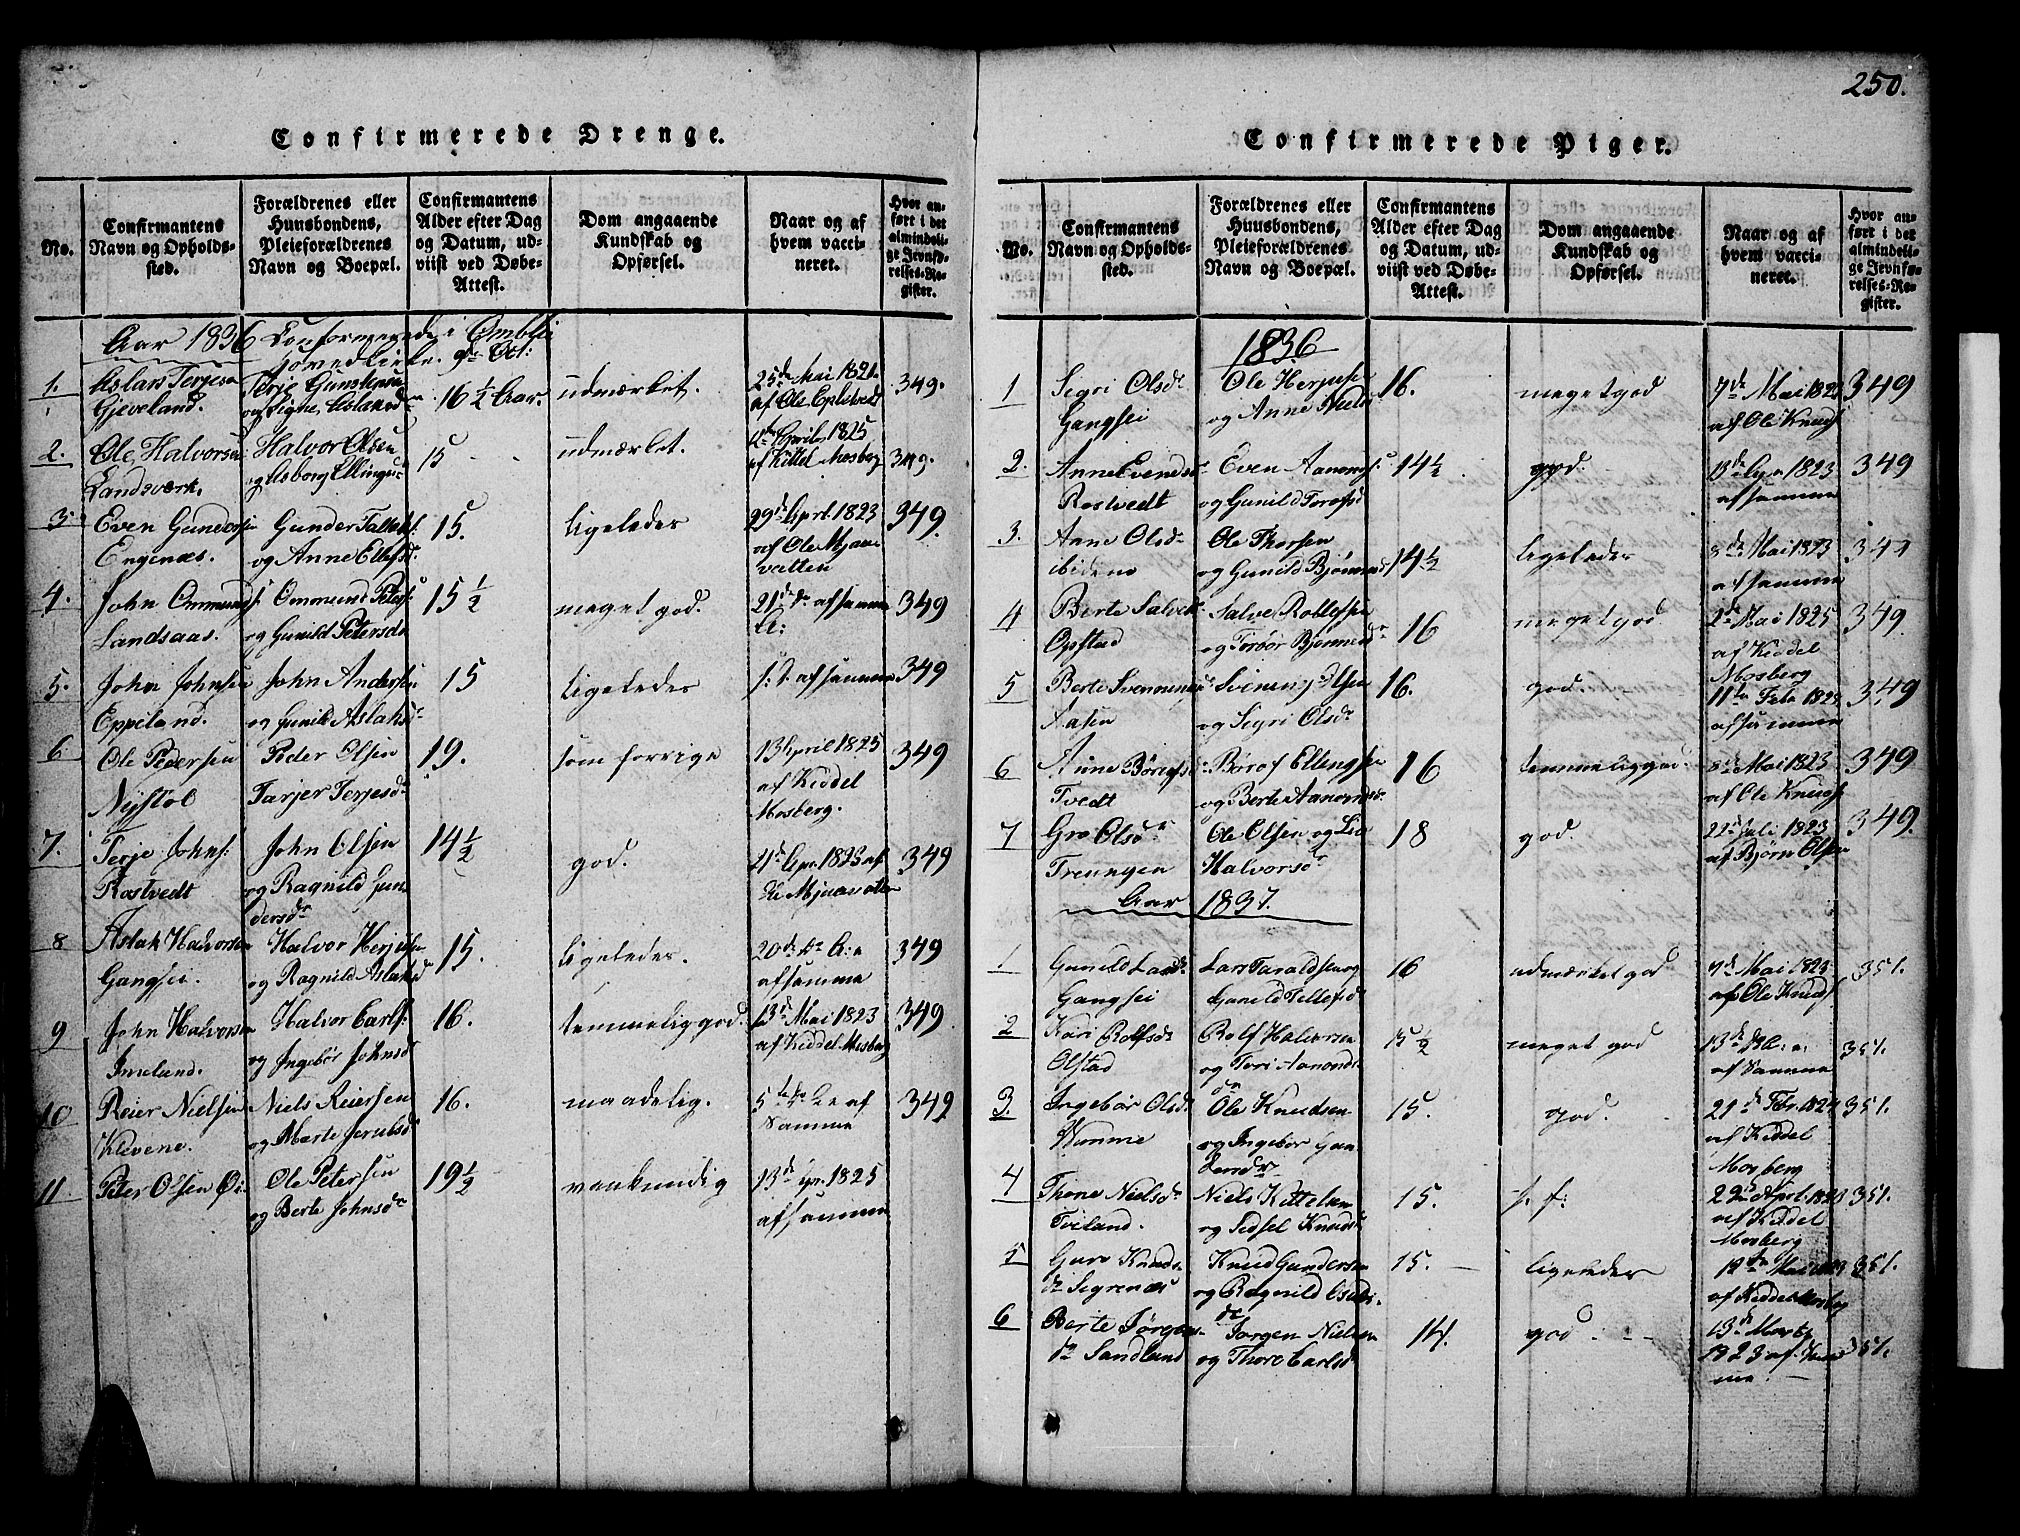 250.
Confirmerede Drenge.
No.
Confirmantens
Navn og Opholds-
sted.
Forældrenes eller
Huusbondens,
Pleieforældrenes
Navn og Boepæl.
Confirmantens
Alder efter Dag
og Datum, ud-
viist ved Døbe-
Attest.
Dom angaaende
Kundskab og
Opførsel.
Naar og af
hvem vacci-
neret.
Hvor an-
ført i det
almindeli-
ge Jevnfø-
relses-Re-
gister.
Aar 1836
1.
Gjeveland.
Terje
og Signe Aslaksd
16 1/2 Aar.
udmærket.
25de Mai 1821.
af Ole
349.
2.
Ole Halvorsen
Landsværk.
Halvor Olsen
og Asborg Ellingsd
15
udmærket.
April 1825
af Kittel Mosberg
349.
3.
Even Gunders
Engenæs.
Gunder
og Anne Ellefsd.
15.
ligeledes
29de Aprl. 1823
af Ole Mjaa-
vatten
349.
4.
John Ommunds.
Landsaas.
Ommund Peders
og Gunild Petersdr
15 1/2
meget god.
21de do. af samme
A:
349
5.
John Johnsen
Eppeland.
John Andersen
og Gunild Aslaksdr
15
ligeledes
af samme
349
6
Ole Pedersen
Nystøl
Peder Olsen
Tarjer Terjesdr
19.
som forrige
13 April 1825
af Kiddel
Mosberg.
349
7.
Terje Johns:
Rostvedt
John Olsen
og Ragnild Gun-
dersdr
14 1/2
god.
21de Apr. 1823 af
Ole Mjaavatten
349
8
Aslak Halvorsen
Gangsei.
Halvor Herjusen
og Ragnild Aslaksd
15.
ligeledes.
20de do A:
af samme
349
9
John Halvorsen
Imeland.
Halvor Carls:
og Ingebor Johnsd
16.
temmelig god.
13de Mai 1823
af Kiddel Mosberg
349.
10
Reier Nielsen
Klevene.
Niels Reiersen
og Marte Jerulsd
16.
maadelig.
5te
Samme
349
11
Peter Olsen Øi
Ole Petersen
og Berte Johnsdr
19 1/2
vankundig
13de Apr. 1825
af samme
Confirmerede Piger.
No.
Confirmantens
Navn og Opholds-
sted.
Forældrenes eller
Huusbondens,
Pleieforældrenes
Navn og Boepæl.
Confirmantens
Alder efter Dag
og Datum, ud-
viist ved Døbe-
Attest.
Dom angaaende
Kundskab og
Opførsel.
Naar og af
hvem vacci-
neret.
Hvor an-
ført i det
almindeli-
ge Jevnfø-
relses-Re-
gister.
1836
1
Segri Olsdr
Gangsei
Ole Herjus
og Anne Niels
16.
meget god
7de Mai 1823
af Ole Knuds
349
2.
Anne Evensdr
Rostvedt
Even Aanons
og Gunild Torofsd
14 1/2
god.
13de Apr. 1823
af samme
349
3.
Anne Olsdr
ibidem
Ole Thorsen
og Gunild Bjørnsd
14 1/2
ligeledes
8de Mai 1823
af samme
349
4
Berte Salves
Opstad
Salve Rollefsen
og Torbør Bjørnsdr
16
meget god.
2de Mai 1825
af Kiddel
Mosberg
349.
5
Berte
Aasen
Svenung Olsen
og Segri Olsdr
16.
god.
11te Febr
af samme
349
6
Anne Børufsd
Tvedt
Børof Ellingsen
og Berte Aanonds.
16
temmelig god.
8de Mai 1823
af Ole Knuds
349
7
Gro Olsdr
Treungen
Ole Olsen og Liv
Halvorsdr
18
god.
22de Juli 1823
af Bjørn Olsen
349.
Aar 1837.
1
Gunild Larsdr
Gangsei
Lars Taraldsen og
Gunild Tellefsd
16
udmærket god
7de Mai 1823
af Ole Knuds
351.
2
Kari Rolfsd
Olstad
Rolf Halvorsen
og Tori Aanonds-
dr
15 1/2
meget god
13de
af Samme
351.
3.
Ingebør Olsd
Wumme
Ole Knudsen
og Ingebor Gun-
dersdr
15.
god.
21de Febr. 1824
af Kiddel
Mosberg
351.
4
Thone Nielsdr
Tveiland.
Niels Kittelsen
og Sidsel Knuds
15.
s. f:
22de Aprl. 1823
af Kiddel
Mosberg
351.
5
Guro Knuds-
dr Segrenæs
Knud Gundersen
og Ragnild
dr
15.
ligeledes
12te Mai 1823
af Kiddel Mosberg
351.
6
Berte Jørgens-
dr Sandland
Jørgen Nielsen
og Thore Carlsd
14.
god
13de Marts
1823 af Sam-
me.
351.